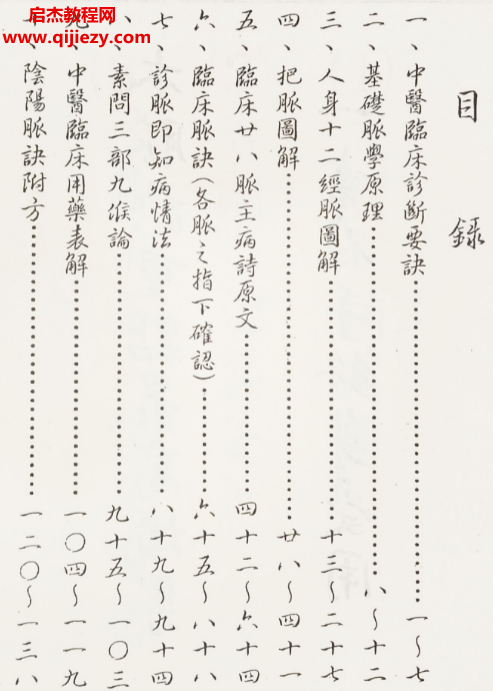 启杰教程网
www.qijiezy.com
目錄
一、中醫臨床診斷要訣……一～七
二、基礎脈學原理……八～十二
三、人身十二經脈圖解……十三～二十七
四、把脈圖解……廿八～四十一
五、臨床廿八脈主病詩原文……四十二～六十四
六、臨床脈訣(各脈之指下確認)……六十五～八十八
七、診脈即知病情法……八十九～九十四
、素問三部九候論……九十五～一〇三
九、中醫臨床用藥表解……一〇四～一一九
、陰陽脈訣附方……一二〇～一三八